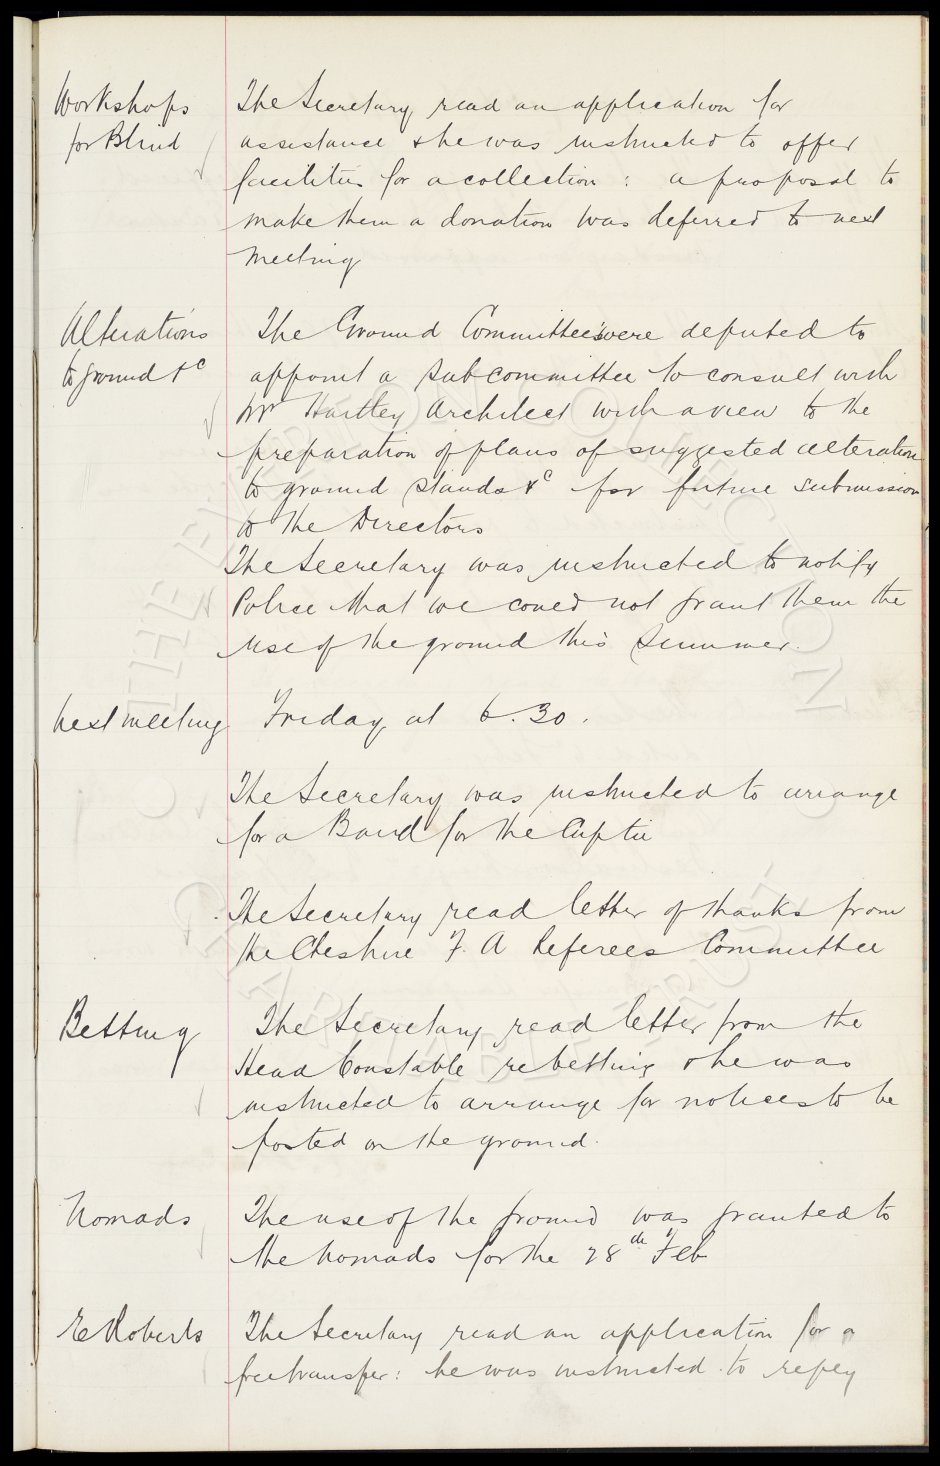 Workshops
for Blind
The Secretary read an application for
assistance & he was instructed to offer
facilities for a collection : a proposal to
make them a donation was deferred to next
meeting
Alterations
to ground &c
The Ground Committee were deputed to
appoint a Sub committee to consult with
Mr Hartley Architect with a view to the
preparation of plans of suggested alteration
to ground stands &c for future submission
to the Directors
The Secretary was instructed to notify
Police that we could not grant them the
use of the ground this Summer.
Next meeting
Friday at 6.30.
The Secretary was instructed to arrange
for a Band for the Cup tie
The Secretary read letter of thanks from
the Cheshire F. A Referees Committee
Betting
The Secretary read letter from the
Head Constable re betting & he was
instructed to arrange for notices to be
posted on the ground.
Nomads
The use of the ground was granted to
the Nomads for the 28th Feb
E Roberts
The Secretary read an application for a
free transfer : he was instructed to reply
THE EVERTON COLLECTION
CHARITABLE TRUST